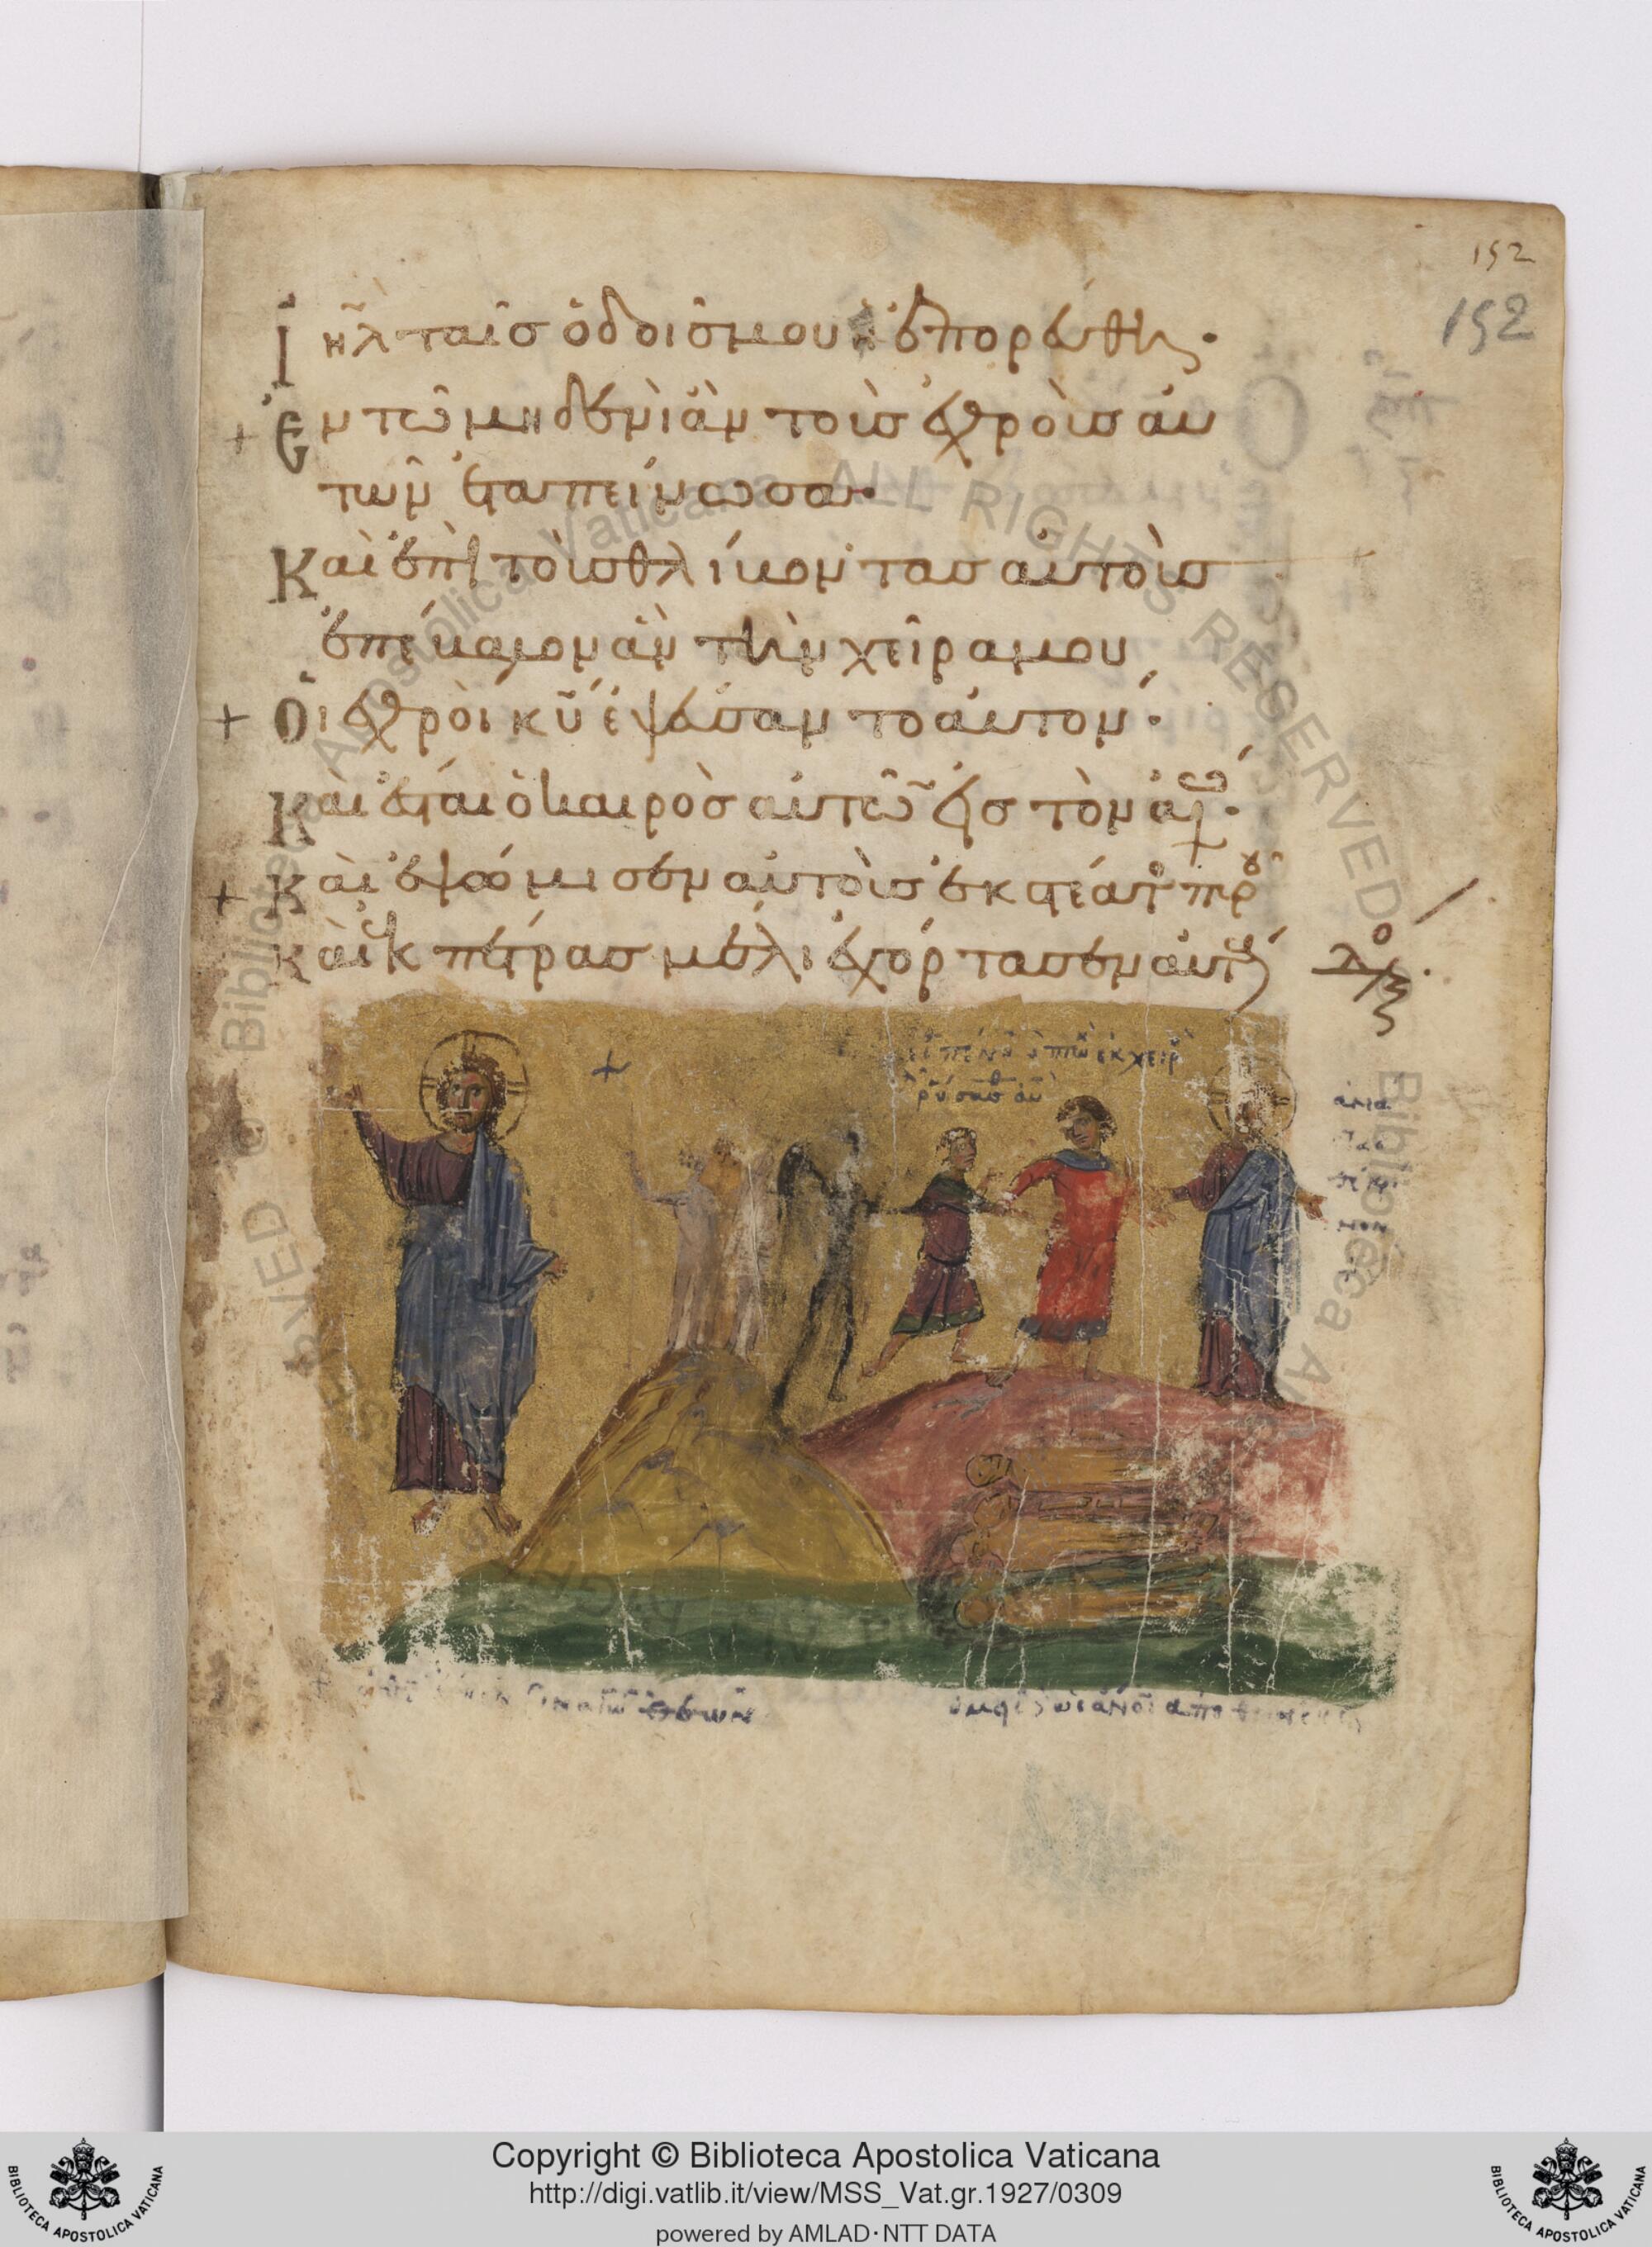 152
152
Ἰηλ ταῖσ ὁδοῖσ μου ἐπορεύθησ·
Ἐν τῶ μηδενὶ ἂν τοὺσ ἐχθροὺσ αὐ
τῶν ἐταπείνωσα·
Καὶ ἐπὶ τοὺσ θλίβοντασ αὐτοὺσ
ἐπέβαλον ἂν τὴν χεῖρα μου
Οἱ ἐχθροὶ κυ ἐψεύσαντο αὐτόν·
Καὶ ἔσται ὁ καιρὸσ αὐτῶν εἰσ τὸν αἰῶ·
Καὶ ἐψώμισεν αὐτοὺσ ἐκ στέατ πυρ
Καὶ ἐκ πέτρασ μέλι ἐχόρτασεν αὐτ
ἐκ χειρ
ἀπο
Copyright © Biblioteca Apostolica Vaticana
http://digi.vatlib.it/view/MSS_Vat.gr.1927/0309
powered by AMLAD·NTT DATA
BIBLIOTECA APOSTOLICA VATICANA
BIBLIOTECA APOSTOLICA VATICANA